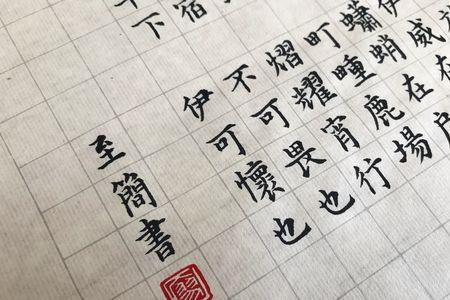 伊威在
蠨蛸在戶
町畽鹿場
熠耀宵行
不可畏也
伊可懷也
宿
下
至簡書